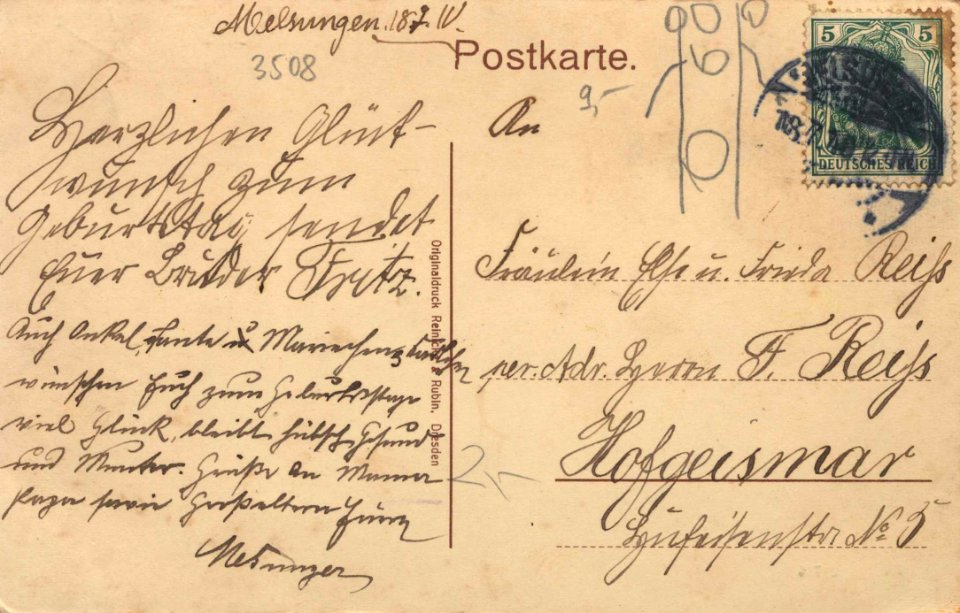 Melsungen 18.7.10.
3508
Postkarte.
9,-
5 5
DEUTSCHES REICH
Herzlichen Glück-
wunsch zum
Geburtstag sendet
Euer Bruder Fritz.
Auch Onkel, Tante u Mariechen
wünschen Euch zum Geburtstage
viel Glück, bleibt hübsch Gesund
und Munter. Grüße an Mama
Papa sowie Großeltern
Melsungen
Originaldruck Reinicke & Rubin. Dresden
2,-
An
Fräulein Else u. Frieda Reiß
per. Adr. Herrn F. Reiß
Hofgeismar
Hufeisenstr No 5